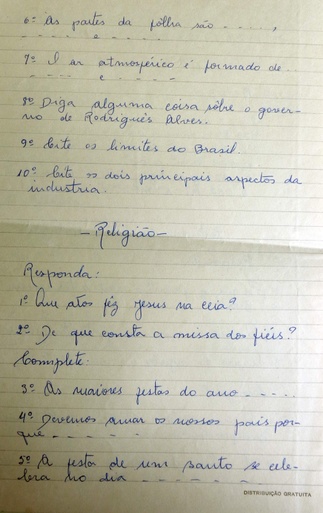 6º As partes da fôlha são - - - - ,
- - - - e - - - - -
7º O ar atmosférico é formado de - -
- - - - - e - - - - -
8º Diga alguma coisa sôbre o gover-
no de Rodrigues Alves.
9º Cite os limites do Brasil.
10º Cite os dois principais aspectos da
industria.
- Religião -
Responda:
1º Que atos fêz Jesus na ceia?
2º De que consta a missa dos fiéis?
Complete:
3º As maiores festas do ano - - - - -
4º Devemos amar os nossos pais por-
que - - - - - -
5º A festa de um santo se cele-
bra no dia - - - - - -
DISTRIBUIÇÃO GRATUITA